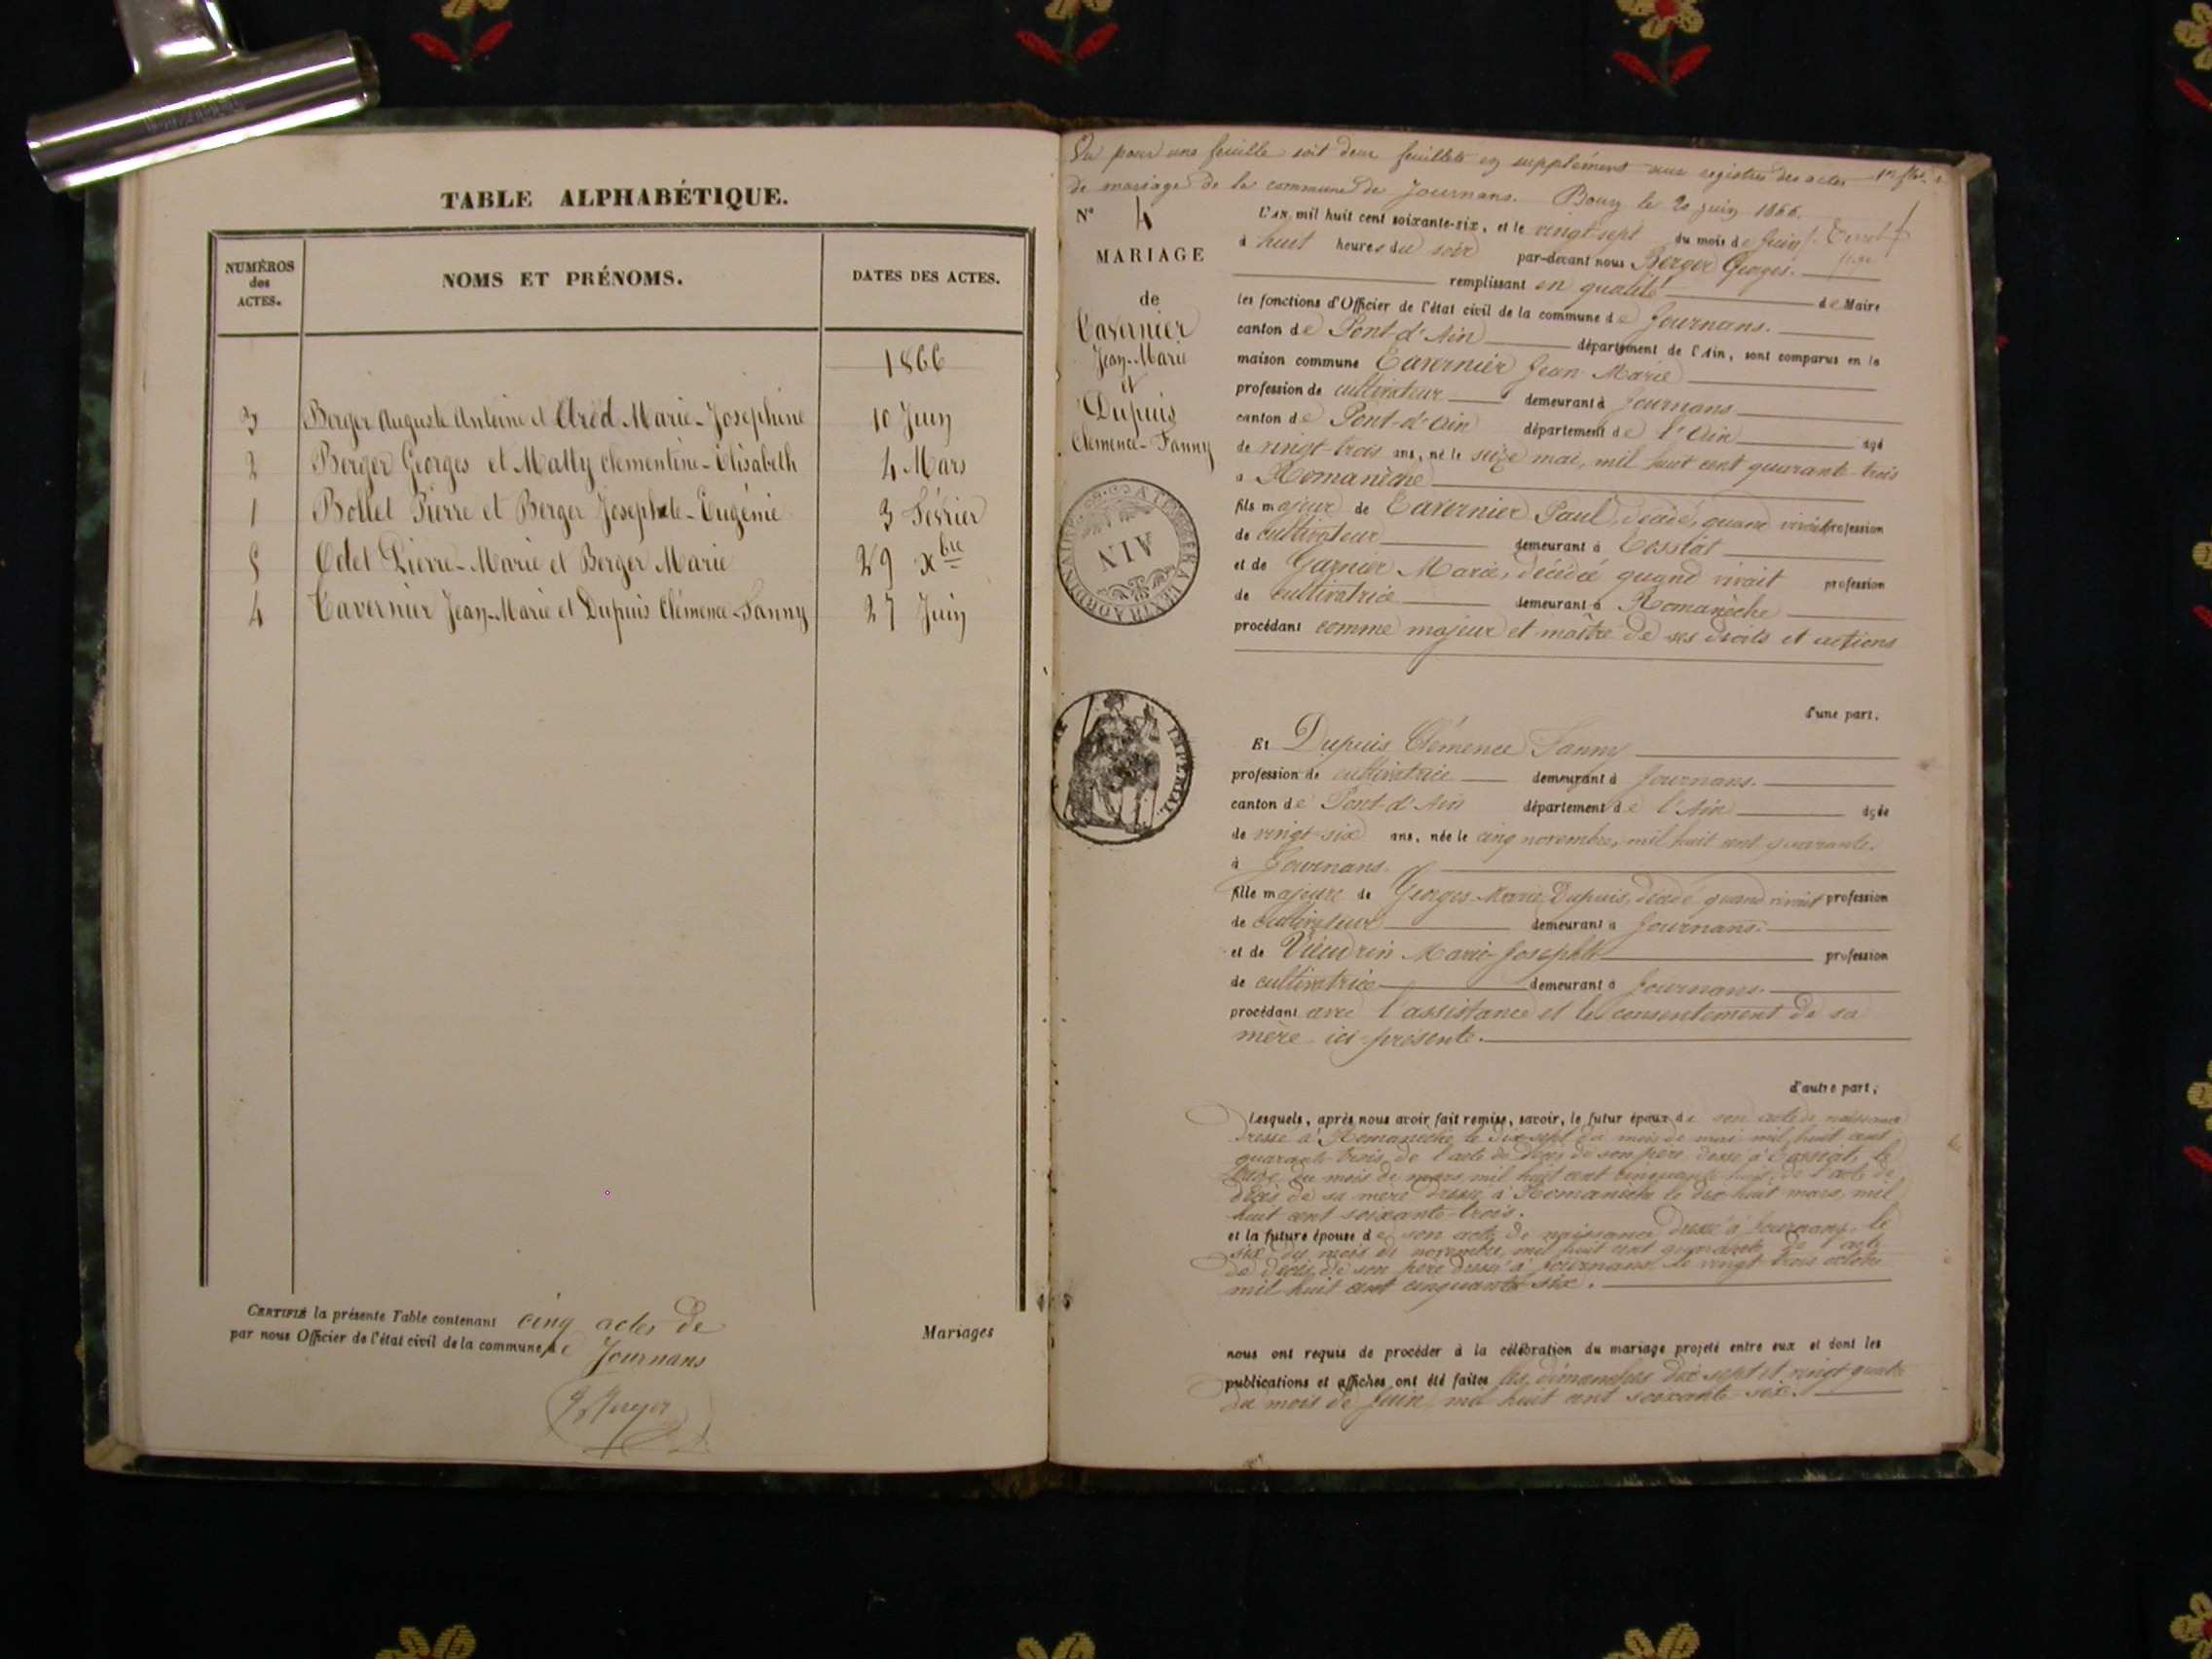 TABLE ALPHABÉTIQUE.
NUMÉROS des ACTES.
NOMS ET PRÉNOMS.
DATES DES ACTES.
1866
3 Berger Auguste Antoine et Aréd Marie-Joséphine 10 Juin
2 Berger Georges et Malty Clémentine-Elisabeth 4 Mars
1 Bollet Pierre et Berger Josephte-Eugénie 3 Février
5 Odet Pierre-Marie et Berger Marie 29 xbre
4 Tavernier Jean-Marie et Dupuis Clémence-Fanny 27 Juin
CERTIFIÉ la présente Table contenant cinq actes de Mariages
par nous Officier de l'état civil de la commune de Journans
G Berger
Vu pour une feuille soit deux feuillets en supplément aux registres des actes
de mariage de la commune de Journans. Bourg le 20 juin 1866.
N° 4
MARIAGE
de
Tavernier
Jean-Marie
et
Dupuis
Clémence-Fanny
AIN
IMPÉRIAL
L'AN mil huit cent soixante-six, et le vingt-sept du mois de Juin
à huit heures du soir par-devant nous Berger Georges.
remplissant en qualité de Maire
les fonctions d'Officier de l'état civil de la commune de Journans.
canton de Pont-d'Ain département de l'Ain, sont comparus en la
maison commune Tavernier Jean Marie
profession de cultivateur demeurant à Journans
canton de Pont-d'Ain département de l'Ain âgé
de vingt-trois ans, né le seize mai, mil huit cent quarante-trois
à Romanèche
fils majeur de Tavernier Paul, décédé, quand vivait profession
de cultivateur demeurant à Tossiat
et de Garnier Marie, décédée quand vivait profession
de cultivatrice demeurant à Romanèche
procédant comme majeur et maître de ses droits et actions
d'une part,
Et Dupuis Clémence Fanny
profession de cultivatrice demeurant à Journans.
canton de Pont-d'Ain département de l'Ain âgée
de vingt-six ans, née le cinq novembre, mil huit cent quarante.
à Journans.
fille majeure de Georges-Marie Dupuis, décédé quand vivait profession
de cultivateur demeurant à Journans.
et de Vieudrin Marie-Josephte profession
de cultivatrice demeurant à Journans.
procédant avec l'assistance et le consentement de sa
mère ici présente.
d'autre part,
Lesquels, après nous avoir fait remise, savoir, le futur époux de son acte de naissance
dressé à Romanèche, le dix-sept du mois de mai mil huit cent
quarante-trois, de l'acte de décès de son père dressé à Tossiat, le
du mois de mars mil huit cent cinquante huit, de l'acte de
décès de sa mère dressé à Romanèche le dix-huit mars, mil
huit cent soixante-trois.
et la future épouse de son acte de naissance dressé à Journans, le
six du mois de novembre, mil huit cent quarante de l'acte
de décès de son père dressé à Journans le vingt trois octobre
mil huit cent cinquante-six.
nous ont requis de procéder à la célébration du mariage projeté entre eux et dont les
publications et affiches ont été faites les dimanches dix-sept et vingt-quatre
du mois de Juin mil huit cent soixante-six.